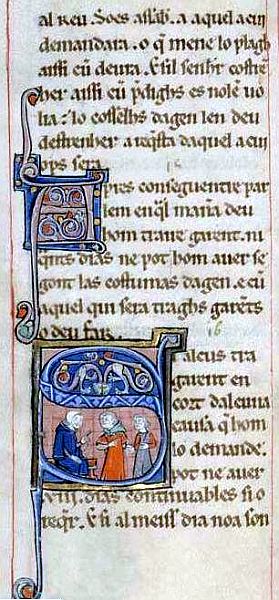 al reu. Soes assab. a aquel a cui
demandara. o q̃ mene lo plagh
aissi cũ deura. E si senhr costre
her aissi cũ p̃dighs es nole vo
lia: lo cosselhs dagen len deu
destrenher a reqsta daquel a cui
ops sera.
Apres conseguentre par
lem en q̃l maña deu
hom traire garent. ni
q̃nts dias ne pot hom auer se
gont las costumas dagen. e cũ
aquel qui sera traghs garẽts
o deu far.
16
tra
garent en
cort dalcuna
causa q̃ hom
lo demande.
pot ne auer
dias continuables si o
reqr. E si al meiss dia noa son